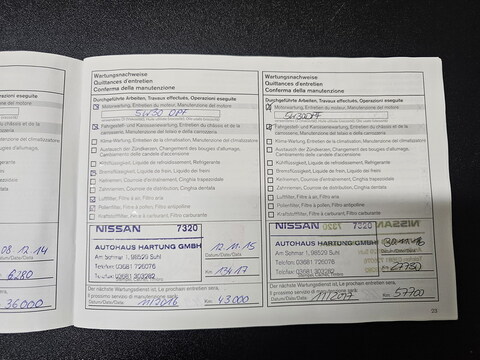 Operazioni eseguite
08.12.14
Datum/Date/Data
6280
36000
Wartungsnachweise
Quittances d'entretien
Conferma della manutenzione
Durchgeführte Arbeiten, Travaux effectués, Operazioni eseguite
Motorwartung, Entretien du moteur, Manutenzione del motore
5W30 DPF
Fahrgestell- und Karosseriewartung, Entretien du châssis et de la carrosserie, Manutenzione del telaio e della carrozzeria
Klima-Wartung, Entretien de la climatisation, Manutenzione del climatizzatore
Austausch der Zündkerzen, Changement des bougies d'allumage, Cambiamento delle candele d'accensione
Kühlflüssigkeit, Liquide de refroidissement, Refrigerante
Bremsflüssigkeit, Liquide de frein, Liquido dei freni
Keilriemen, Courroie d'entraînement, Cinghia trapezoidale
Zahnriemen, Courroie de distribution, Cinghia dentata
Luftfilter, Filtre à air, Filtro aria
Pollenfilter, Filtre à pollen, Filtro antipolline
Kraftstofffilter, Filtre à carburant, Filtro carburante
NISSAN 7320
AUTOHAUS HARTUNG GMBH
Am Sommar 1, 98529 Suhl
Telefon 03681 726076
Telefax 03681 303282
12.11.15
Datum/Date/Data
13417
Der nächste Wartungsdienst ist, Le prochain entretien sera,
Il prossimo servizio di manutenzione sarà:
Datum/Date/Data 11/2016 Km: 43000
Wartungsnachweise
Quittances d'entretien
Conferma della manutenzione
Durchgeführte Arbeiten, Travaux effectués, Operazioni eseguite
Motorwartung, Entretien du moteur, Manutenzione del motore
5W30DPF
Fahrgestell- und Karosseriewartung, Entretien du châssis et de la carrosserie, Manutenzione del telaio e della carrozzeria
Klima-Wartung, Entretien de la climatisation, Manutenzione del climatizzatore
Austausch der Zündkerzen, Changement des bougies d'allumage, Cambiamento delle candele d'accensione
Kühlflüssigkeit, Liquide de refroidissement, Refrigerante
Bremsflüssigkeit, Liquide de frein, Liquido dei freni
Keilriemen, Courroie d'entraînement, Cinghia trapezoidale
Zahnriemen, Courroie de distribution, Cinghia dentata
Luftfilter, Filtre à air, Filtro aria
Pollenfilter, Filtre à pollen, Filtro antipolline
Kraftstofffilter, Filtre à carburant, Filtro carburante
NISSAN 7320
AUTOHAUS HARTUNG GMBH
Am Sommar 1, 98529 Suhl
Telefon 03681 726076
Telefax 03681 303282
Datum/Date/Data
27730
Der nächste Wartungsdienst ist, Le prochain entretien sera,
Il prossimo servizio di manutenzione sarà:
Datum/Date/Data 11/2017 Km: 57700
23